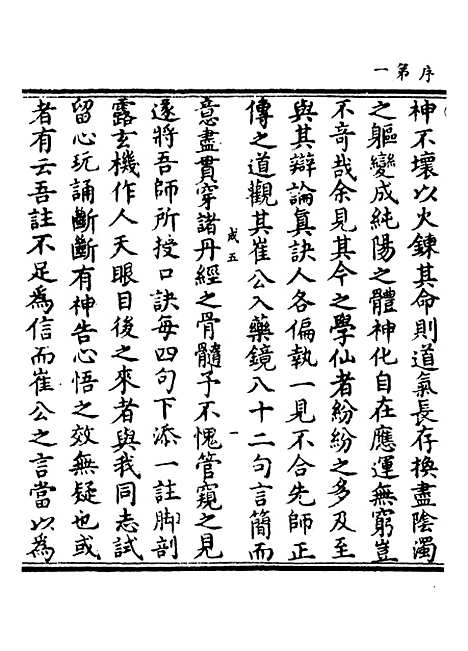 序第一
神不壞以火鍊其命則道氣長存換盡陰濁
之軀變成純陽之體神化自在應運無窮豈
不竒哉余見其今之學仙者紛紛之多及至
與其辯論真訣人各偏執一見不合先師正
傳之道觀其崔公入藥鏡八十二句言簡而
成五
一
意盡貫穿諸丹經之骨髓予不愧管窺之見
遂將吾師所授口訣每四句下添一註脚剖
露玄機作人天眼目後之來者與我同志試
留心玩誦斷斷有神告心悟之效無疑也或
者有云吾註不足為信而崔公之言當以為